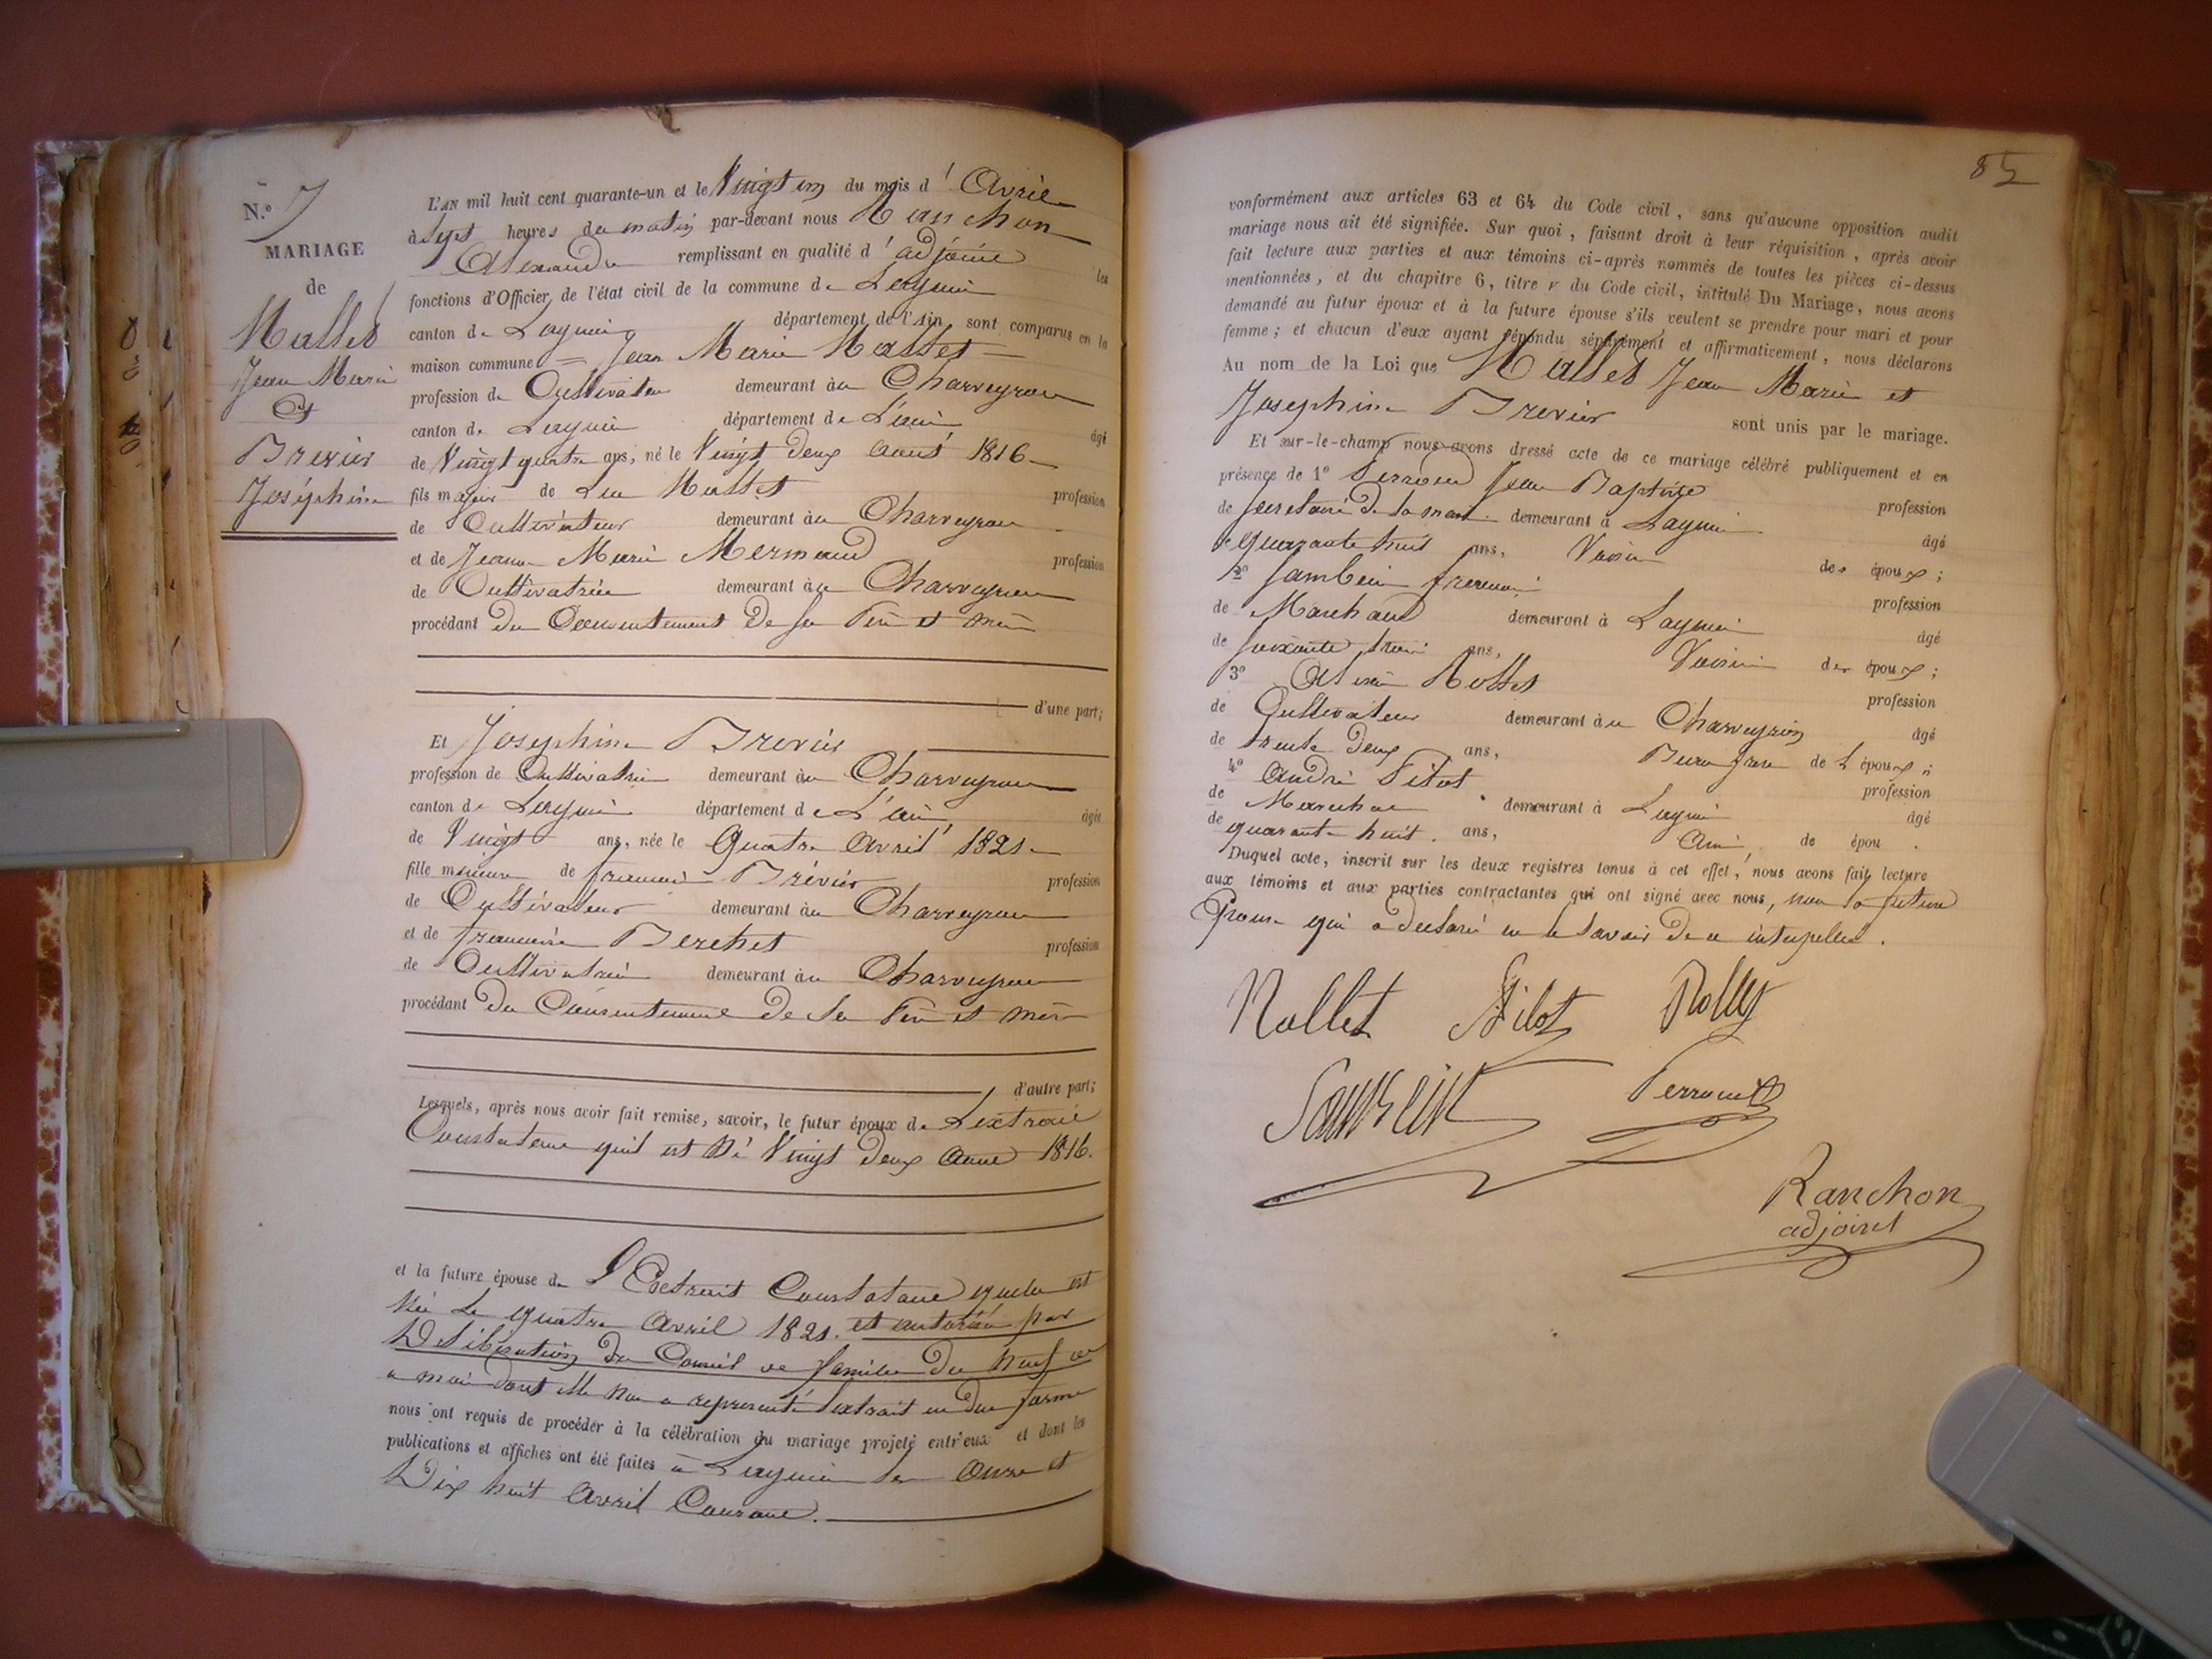 N.° 7
MARIAGE
de
Mallet
Jean Marie
Et
Brevier
Joséphine
L'AN mil huit cent quarante-un et le Vingt un du mois d' Avril
à Sept heures du matin par-devant nous Ranchon
Alexandre remplissant en qualité d' adjoint les
fonctions d'Officier de l'état civil de la commune de Lagnieu
canton de Lagnieu département de l'Ain, sont comparus en la
maison commune = Jean Marie
profession de Cultivateur demeurant au Charveyron
canton de Lagnieu département de L'ain âgé
de Vingt quatre ans, né le Vingt deux Aout 1816
fils majeur de profession
de Cultivateur demeurant au Charveyron
et de Jeanne Marie Mermand profession
de Cultivatrice demeurant au Charveyron
procédant du Consentement De Ses Père et mère
d'une part;
Et Josephine Brevier
profession de Cultivatrice demeurant au Charveyron
canton de Lagnieu département de L'ain âgée
de Vingt ans, née le Quatre Avril 1821
fille mineure de francois Brévier profession
de Cultivateur demeurant au Charveyron
et de francoise Berthet profession
de Cultivatrice demeurant au Charveyron
procédant du Consentement De Ses Père et mère
d'autre part;
Lesquels, après nous avoir fait remise, savoir, le futur époux de L'extrait
Constatant qu'il est Né Vingt Deux Aout 1816.
et la future épouse de L'Extrait Constatant quelle est
Née Le quatre Avril 1821. et autorisée par
Délibération du Conseil de famille Du Neuf de
ce mois dont elle nous a représenté l'extrait en due forme
nous ont requis de procéder à la célébration du mariage projeté entr'eux et dont les
publications et affiches ont été faites à Lagnieu les Onze et
Dix huit Avril Courant.
85
conformément aux articles 63 et 64 du Code civil, sans qu'aucune opposition audit
mariage nous ait été signifiée. Sur quoi, faisant droit à leur réquisition, après avoir
fait lecture aux parties et aux témoins ci-après nommés de toutes les pièces ci-dessus
mentionnées, et du chapitre 6, titre v du Code civil, intitulé Du Mariage, nous avons
demandé au futur époux et à la future épouse s'ils veulent se prendre pour mari et pour
femme; et chacun d'eux ayant répondu séparément et affirmativement, nous déclarons
Au nom de la Loi que Jean Marie et
Josephine Brevier sont unis par le mariage.
Et sur-le-champ nous avons dressé acte de ce mariage célébré publiquement et en
présence de 1° Perroud Jean Baptiste profession
de Secretaire De la mairie demeurant à Lagnieu âgé
de Quarante huit ans, Voisin des époux;
2° francois profession
de Marchand demeurant à Lagnieu âgé
de Soixante trois ans, Voisin des époux;
3° profession
de Cultivateur demeurant au Charveyron âgé
de trente Deux ans, Beau frere de L'époux;
4° André Pilot profession
de Marechal demeurant à Lagnieu âgé
de quarante huit ans, Ami de épou .
Duquel acte, inscrit sur les deux registres tenus à cet effet, nous avons fait lecture
aux témoins et aux parties contractantes qui ont signé avec nous, non la future
Epouse qui a declaré ne le Savoir De ce interpellée.
Pilot
Perroud
Ranchon
adjoint